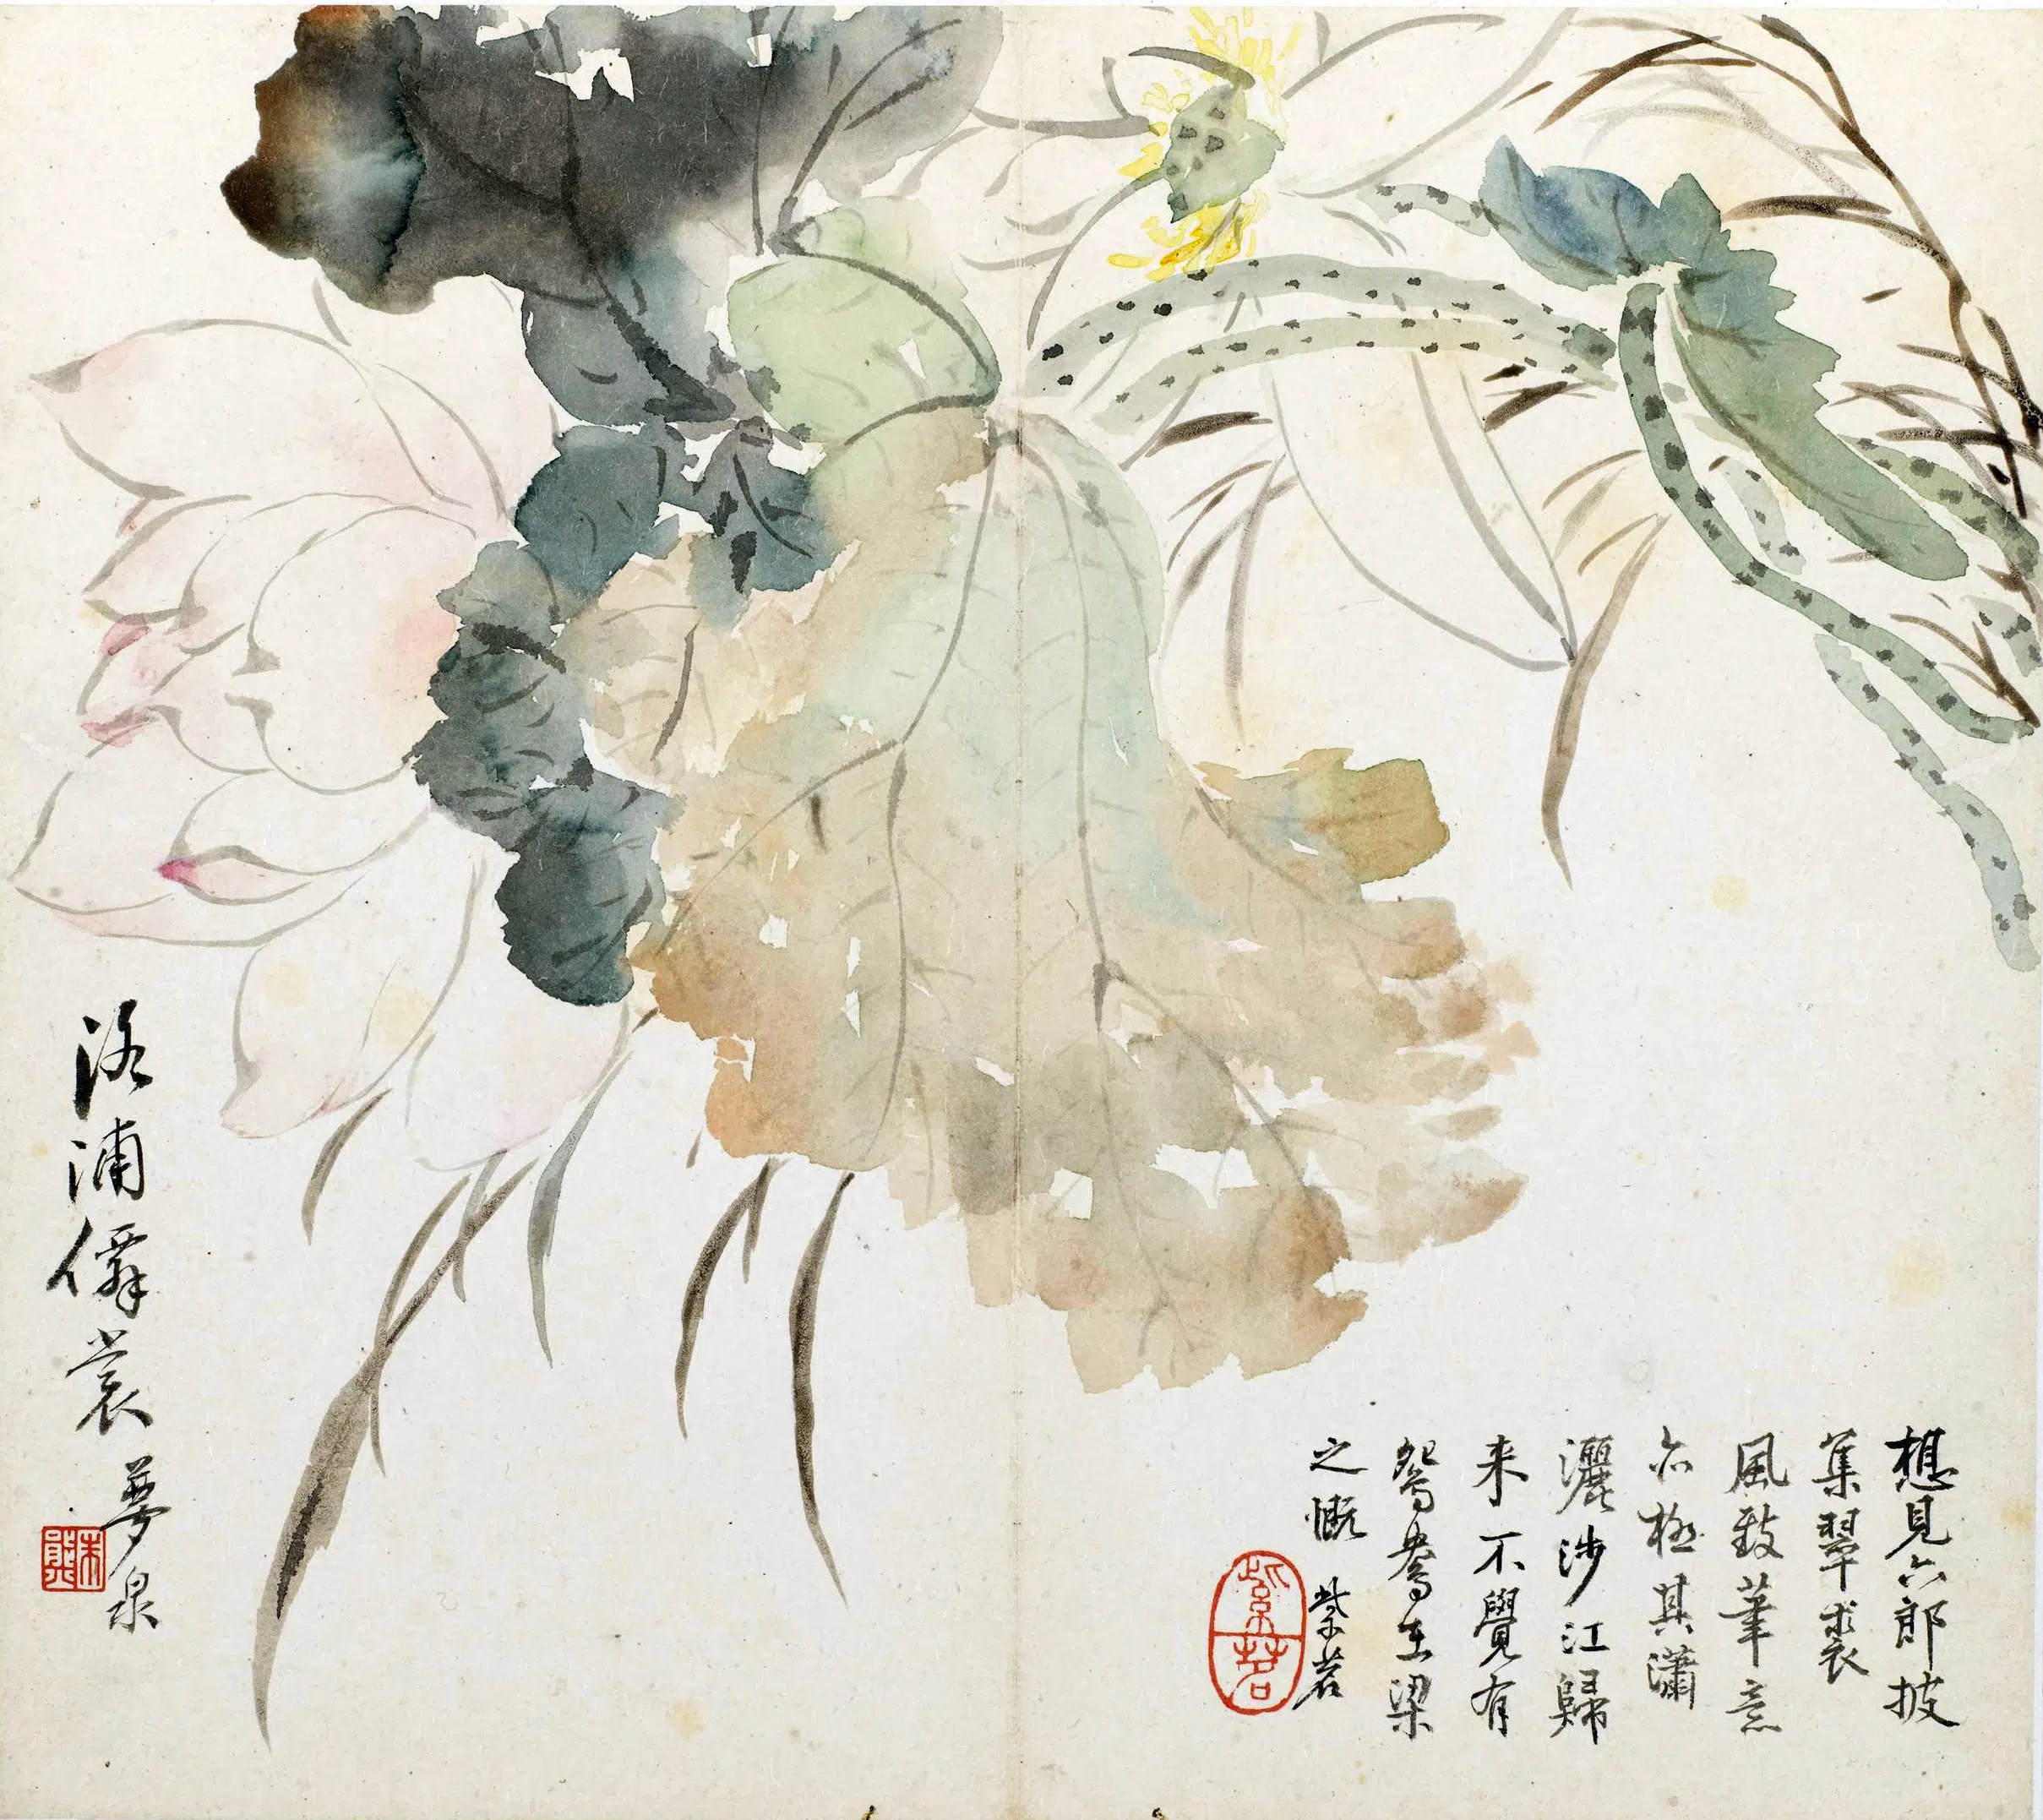 想見六郎披
集翠裘
風致筆意
亦極其瀟
灑涉江歸
来不覺有
鴛鴦在梁
之慨 紫茗
紫茗
洛浦僊裳 夢泉
朱熊